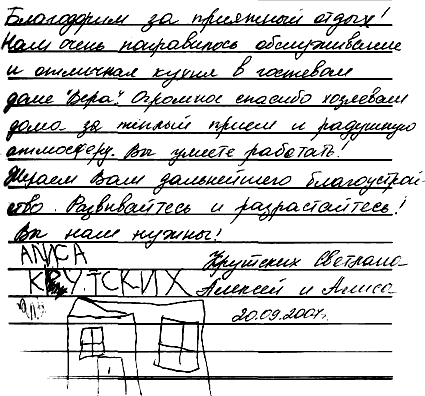 Благодарим за приятный отдых!
Нам очень понравилось обслуживание
и отличная кухня в гостевом
доме "Вера". Огромное спасибо хозяевам
дома за тёплый прием и радушную
атмосферу. Вы умеете работать!
Желаем Вам дальнейшего благоустрой-
ство. Развивайтесь и разрастайтесь!
Вы нам нужны!
АЛИСА
КРУТСКИХ
Крутских Светлана
Алексей и Алиса
20.09.2007г.